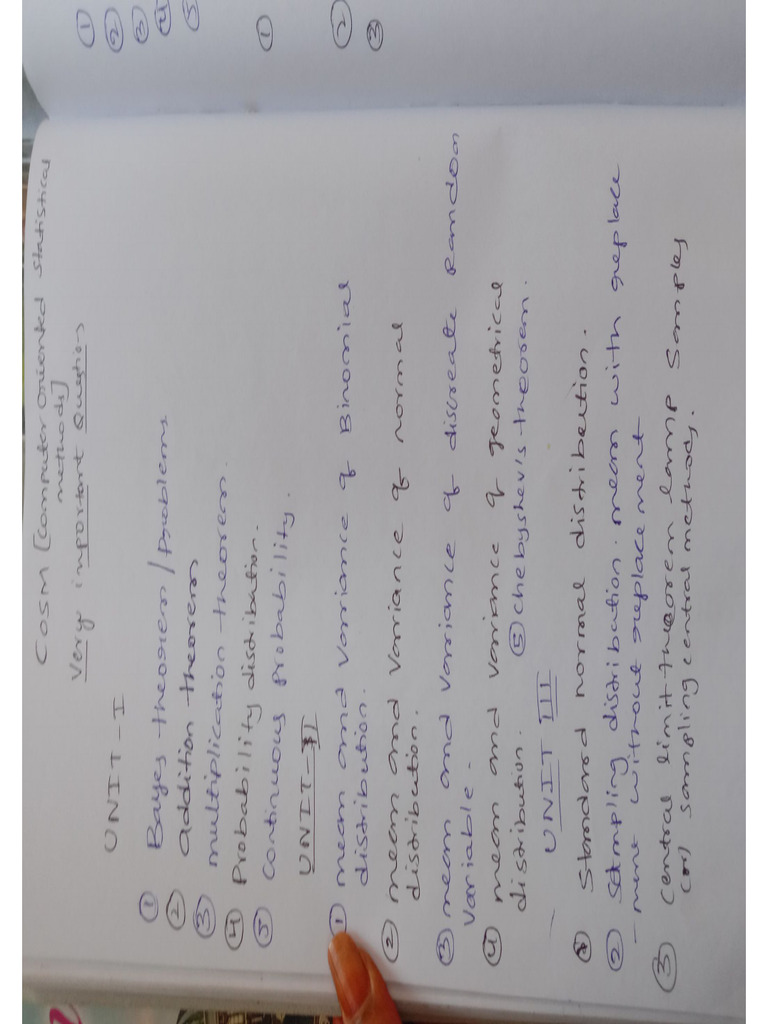 COSM [Computer Oriented Statistical
methods]
Very important Question
UNIT-I
① Bayes theorem/Problems
② addition theorem
③ multiplication theorem.
④ Probability distribution.
⑤ continuous probability.
UNIT-II
① mean and variance of Binomial
distribution.
② mean and variance of normal
distribution.
③ mean and variance of discreate Random
variable.
④ mean and variance of geometrical
distribution. ⑤ chebyshev's theorem.
UNIT III
① Standard normal distribution.
② Sampling distribution. mean with replace
-ment without replacement
③ central limit theorem samples
(or) sampling central methods.
①
②
③
④
⑤
①
②
③